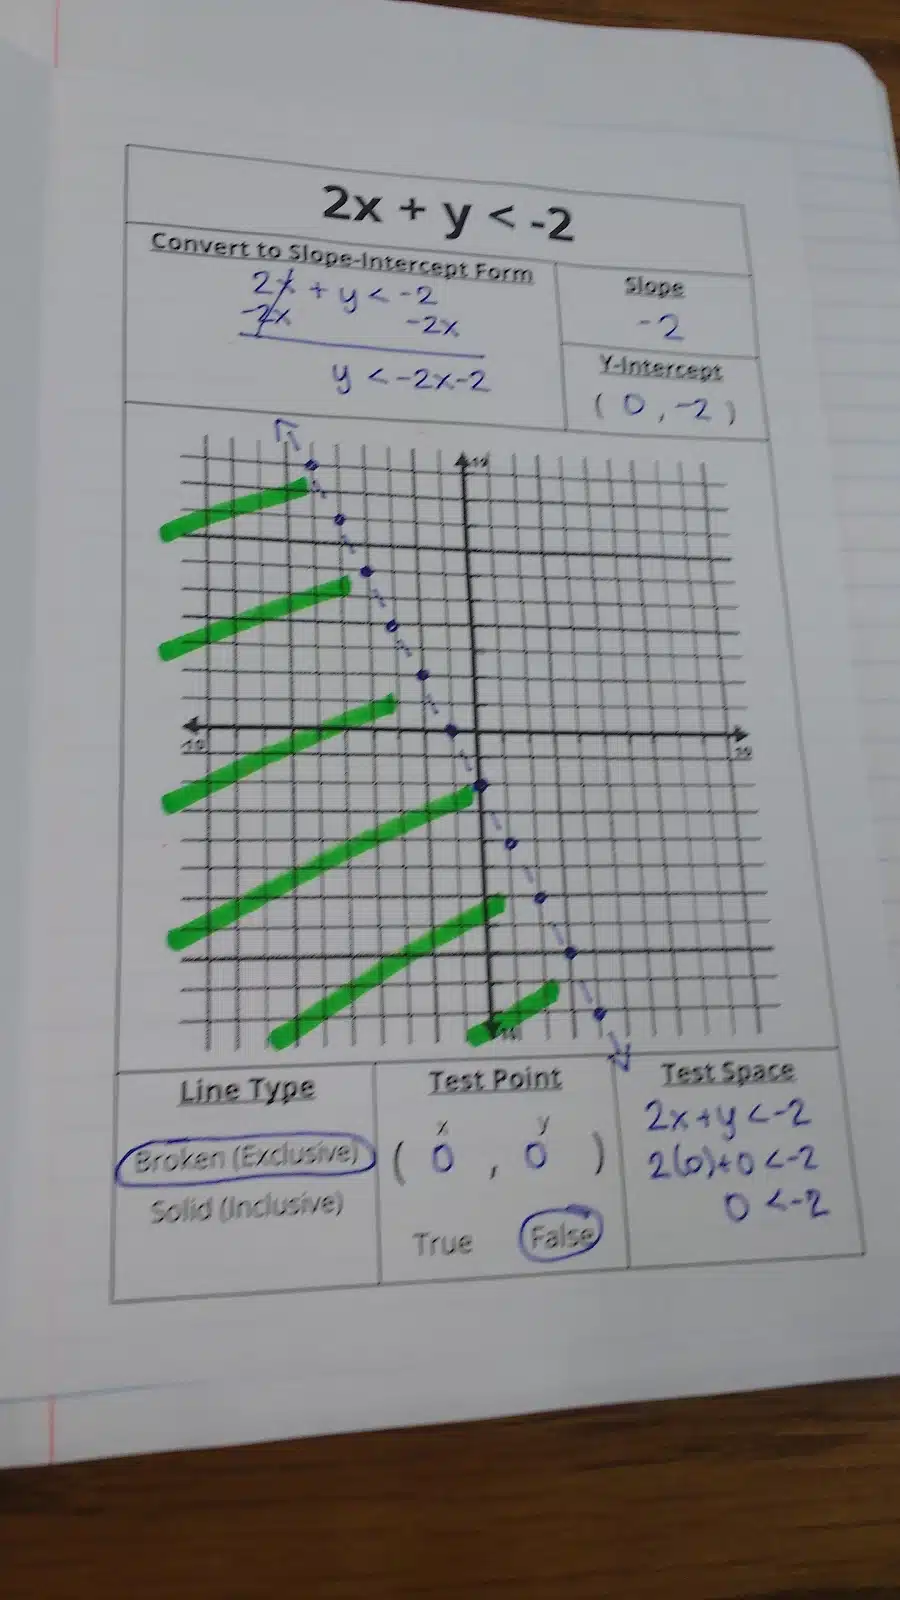 2x + y < -2
Convert to Slope-Intercept Form
2x + y < -2
-2x -2x
y < -2x-2
Slope
-2
Y-Intercept
(0, -2)
10
-10
10
Line Type
Broken (Exclusive)
Solid (Inclusive)
Test Point
x y
( 0 , 0 )
True False
Test Space
2x+y <-2
2(0)+0 <-2
0 <-2